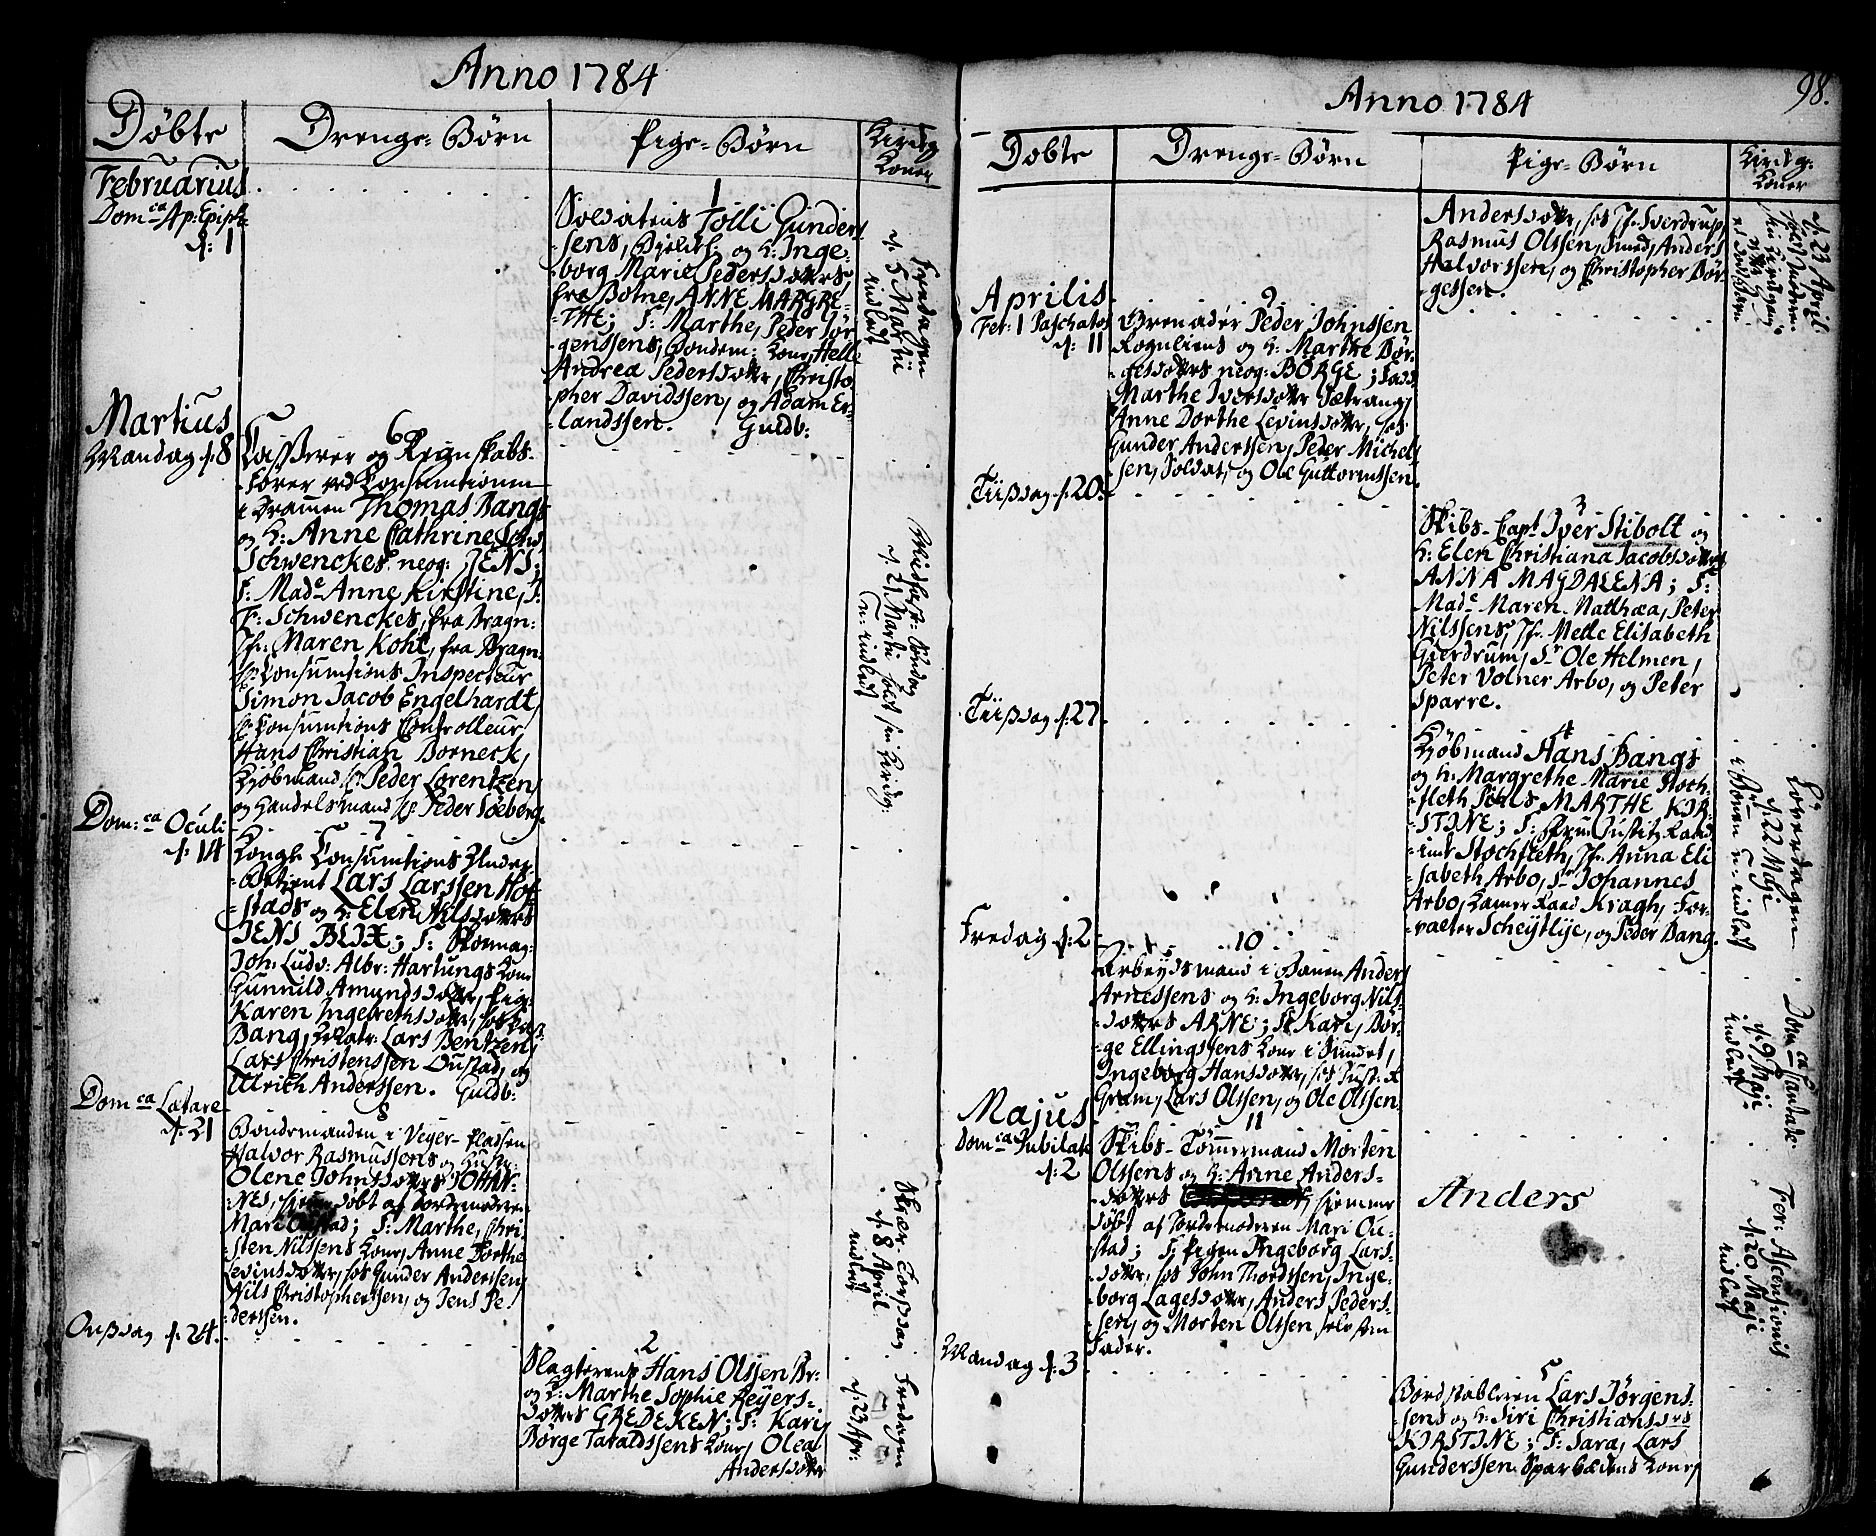 Anno 1784
Döbte
Drenge-Börn
Pige-Börn
Kirckg.
Koner
Februarius
Dom:ca Ap: Epiph:
d: 1
1
Soldatens Tölli Gunders-
sens, og H: Inge-
borg Marie Pedersdotters
fra Botne, ANNE MARGRE-
THE; F: Marthe, Peder Jör-
genssens, Bondem: Kone, Helle
Andrea Pedersdotter, Christo-
pher Davidssen, og Adam Er-
landssen. Guldb:
Fredagen
d. 5 Martii
indledt
Martius
Mandag d. 8
6
Casserer og Regnskabs-
förer ved Consumtionen
i Dramen Thomas Bangs
og H: Anne Cathrine
Schwenckes neog: JENS;
F: Made Anne Kirstine,
Schwenckes, fra Bragn:
Jfr: Maren Kohl, fra Bragn:
Hr: Consumtions Inspecteur
Simon Jacob Engelhardt,
Hr: Consumtions Controlleur
Hans Christian Borneck,
Kjöbmand Hr: Peder Lorentzen,
og Handelsmand Hr: Peder Söeberg.
d. 21 Martii holdt sin Kirckg:
n: indledt
Dom:ca Oculi
d: 14
7
Kongl: Consumtions Under-
Betient Lars Larssen Hof-
stads og H: Elen Nilsdotters
JENS BLIX; F: Skomag:
Joh: Ludv: Albr: Hartungs Kone
Gunnild Amundsdotter, Pig:
Karen Ingebrethsdotter,
Bang, Lars Bentzen,
Lars Christenssen Oustad, og
Ulrich Anderssen. Guldb:
Dom:ca Lætare
d: 21
8
Bondemanden i Veyer-Pladsen
Halvor Rasmussens og Hustr:
Olene Johnsdotters JOHAN-
NES, hjemme döbt af Jordemoderen
Mari Oustad; F: Marthe, Chri-
sten Nilssens Kone, Anne Dorthe
Levinsdotter, hos Gunder Anderssen,
Nils Christopherssen, og Jens Pe-
derssen.
Skiær-Torsdag
d. 8 April
indledt
Onsdag d. 24.
2
Slagterens Hans Olssen Br:
og H: Marthe Sophie Reyers-
dotters GREDEKEN; F: Kari,
Börge Taraldssens Kone, Olea
Andersdotter
Fredagen
d. 23 Apr:
Anno 1784
98.
Döbte
Drenge-Börn
Pige-Börn
Kirckg:
Koner
Andersdotter, hos Jfr: Sverdrup,
Rasmus Olssen, Smed, Anders
Halvorssen, og Christopher Bör-
gessen.
d. 23 April
holdt Moderen
sin Kirckgang
Aprilis
Fer: 1 Paschatos
d. 11
9
Grenadér Peder Johnssen
Roguliens og H: Marthe Bör-
gesdotters neog: BÖRGE; Fadd:
Marthe Iversdotter Sætrang,
Anne Dorthe Levinsdotter, hos
Gunder Anderssen, Peder Michel-
sen, Soldat, og Ole Guttormssen.
Tiisdag d. 20.
3
Skibs-Capt. Iver Stibolt og
H: Elen Christiana Jacobsdotters
ANNA MAGDALENA; F:
Made Maren Matthæa, Peter
Nilssens, Jfr. Mette Elisabeth
Gierdrum, Sr Ole Helmen,
Peter Volner Arbo, og Peter
Sparre.
Tiisdag d. 27.
4
Kjöbmand Hans Bangs
og H: Margrethe Marie Stoch-
fleth MARTHE KIR-
STINE; F: Frue Justitz Raad-
inde Stochfleth, Jfr. Anna Eli-
sabeth Arbo, Sr Johannes
Arbo, Kamer Raad Kragh, For-
valter Scheytlye, og Peder Bang.
Löverdagen
d. 22 Maje
n: indledt
Fredag d. 2
10
Arbeydsmand i Anders
Arnessens og H: Ingeborg Nils-
dotters ARNE; F: Kari, Bör-
ge Ellingssens Kone i Sundet,
Ingeborg Hansdotter, hos
Gram, Lars Olssen, og Ole Olssen.
Dom:ca Cantate
d. 9 Maje
indledt
Majus
Dom:ca Jubilate
d: 2
11
Skibs-Tömmermand Morten
Olssens og H: Anne Anders-
dotters hjemme
döbt af Jordemoderen Mari Ou-
stad; F: Pigen Ingeborg Lars-
dotter, hos John Thordssen, Inge-
borg Lagesdotter, Anders Peders-
sen, og Morten Olssen, selv som
Fader.
Anders
Fer: Ascensionis
d. 20 Maje
indledt
Mandag d. 3
5
Bordstableren Lars Jörgens-
sens og H: Siri Christiansdrs
KIRSTINE; F: Sara, Lars
Gunderssen Sparbæchens Kone,